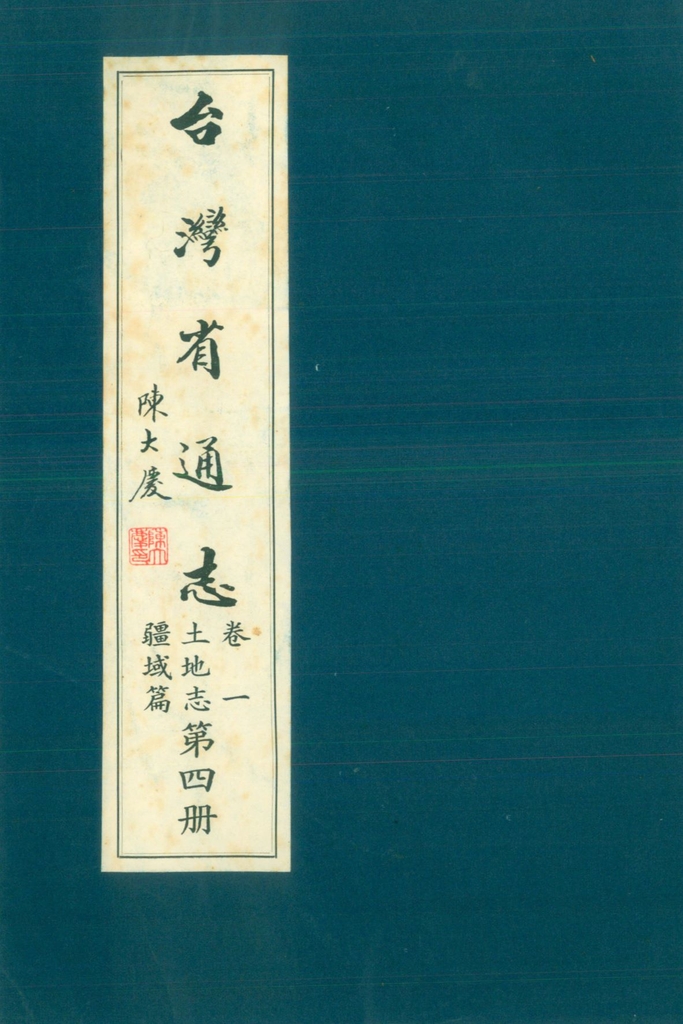 台灣省通志
卷一
土地志
疆域篇
第四册
陳大慶